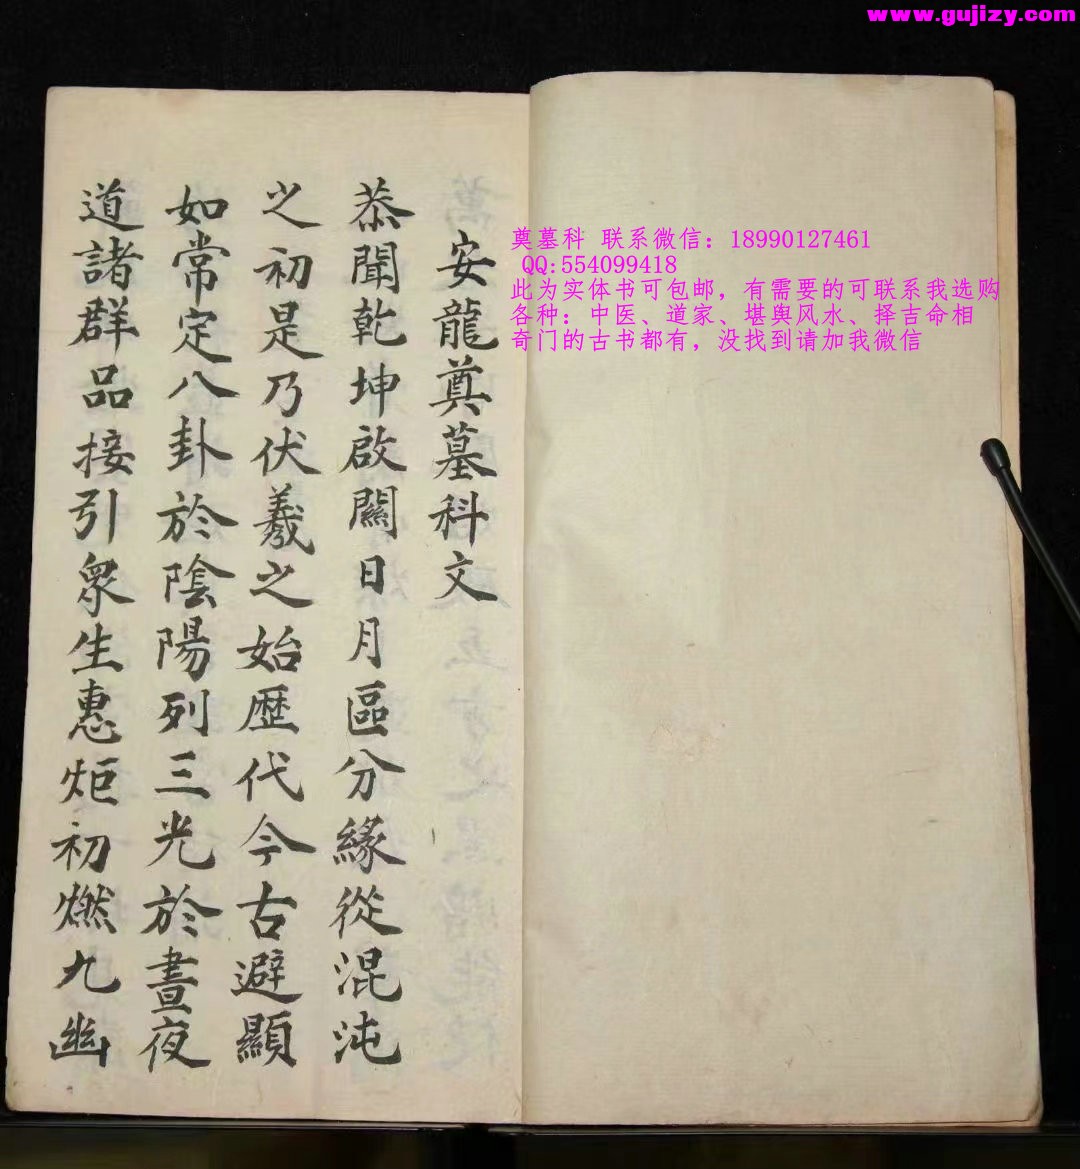 www.gujizy.com
奠墓科 联系微信：18990127461
QQ:554099418
此为实体书可包邮，有需要的可联系我选购
各种：中医、道家、堪舆风水、择吉命相
奇门的古书都有，没找到请加我微信
安龍奠墓科文
恭聞乾坤啟闢日月區分緣從混沌
之初是乃伏羲之始歷代今古避顯
如常定八卦於陰陽列三光於晝夜
道諸群品接引衆生惠炬初燃九幽